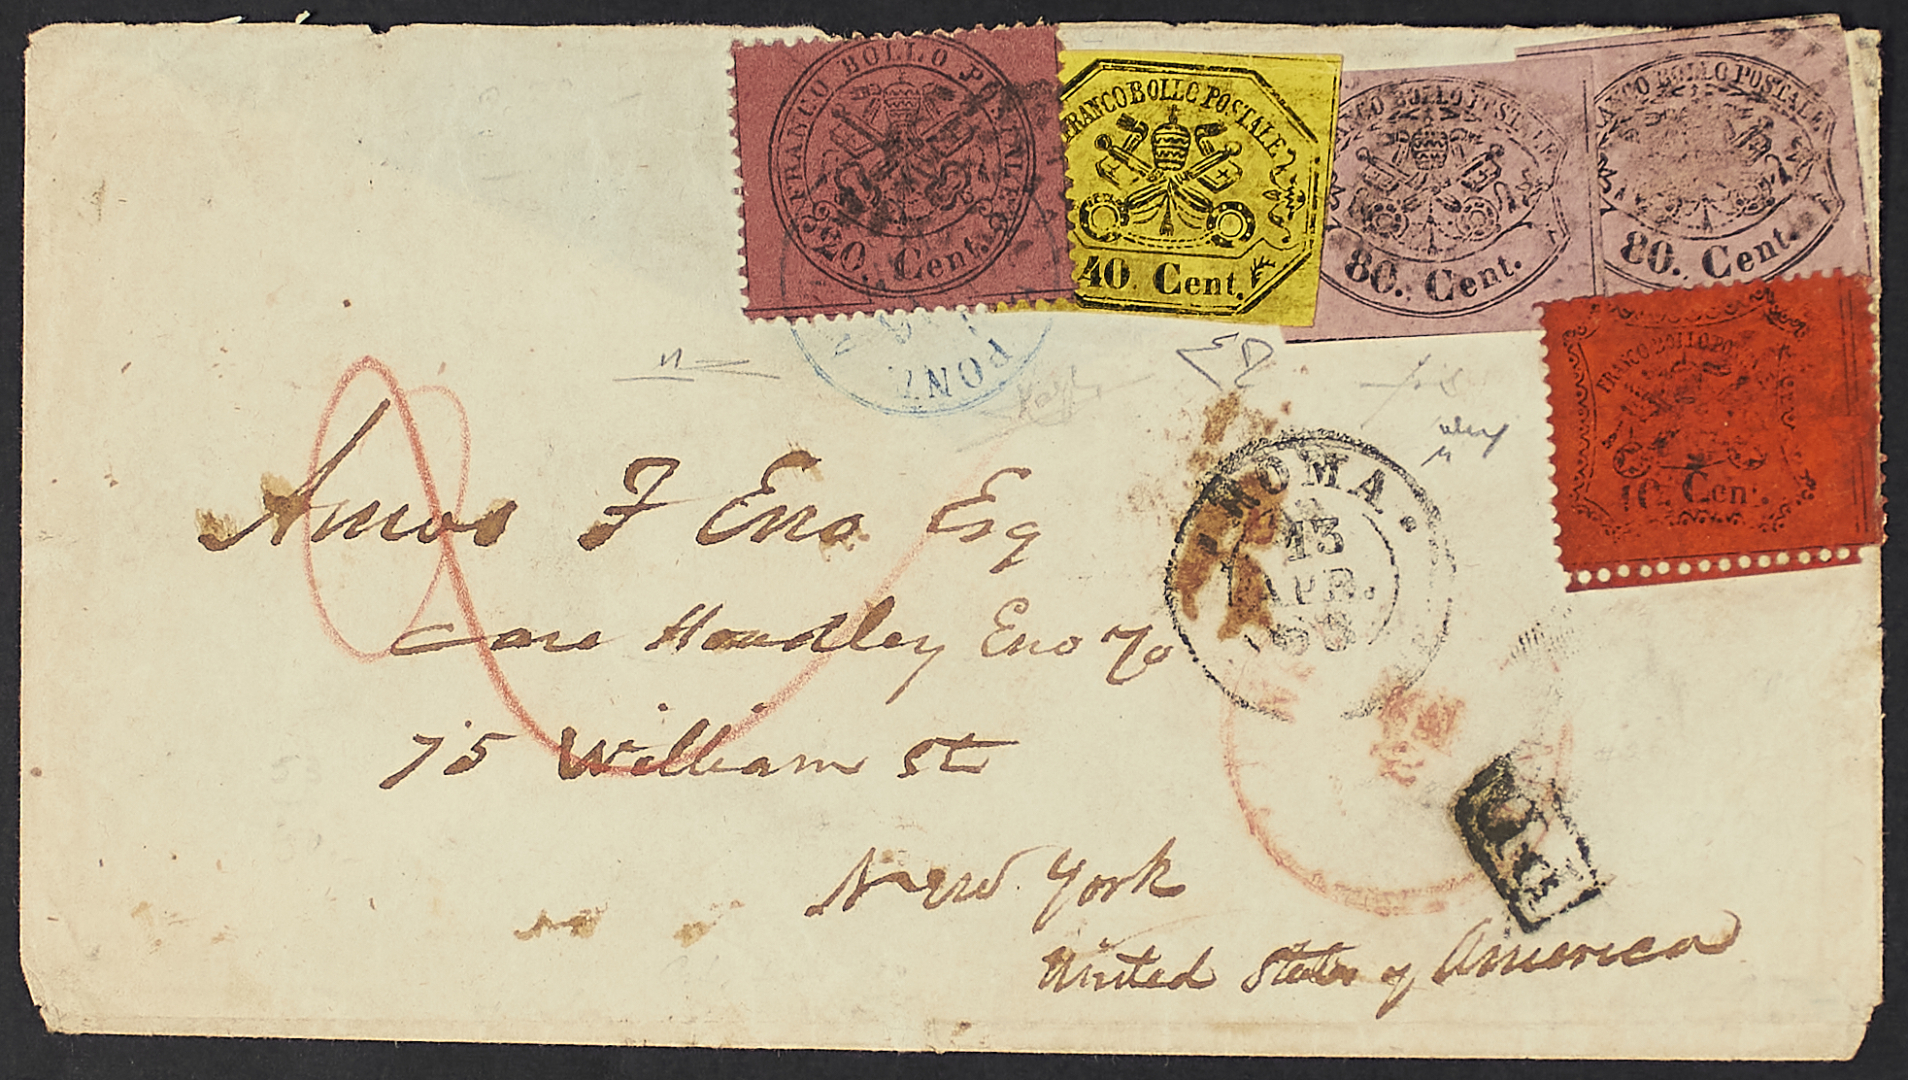 FRANCO BOLLO POSTALE
20. Cent.
FRANCO BOLLO POSTALE
40 Cent.
FRANCO BOLLO POSTALE
80. Cent.
FRANCO BOLLO POSTALE
80. Cent.
FRANCO BOLLO POSTALE
10. Cent.
PONT
ROMA.
13
APR.
68
Amos F Eno Esq
care Hoadley Eno & Co
75 William St
New York
United States of America
P.D.